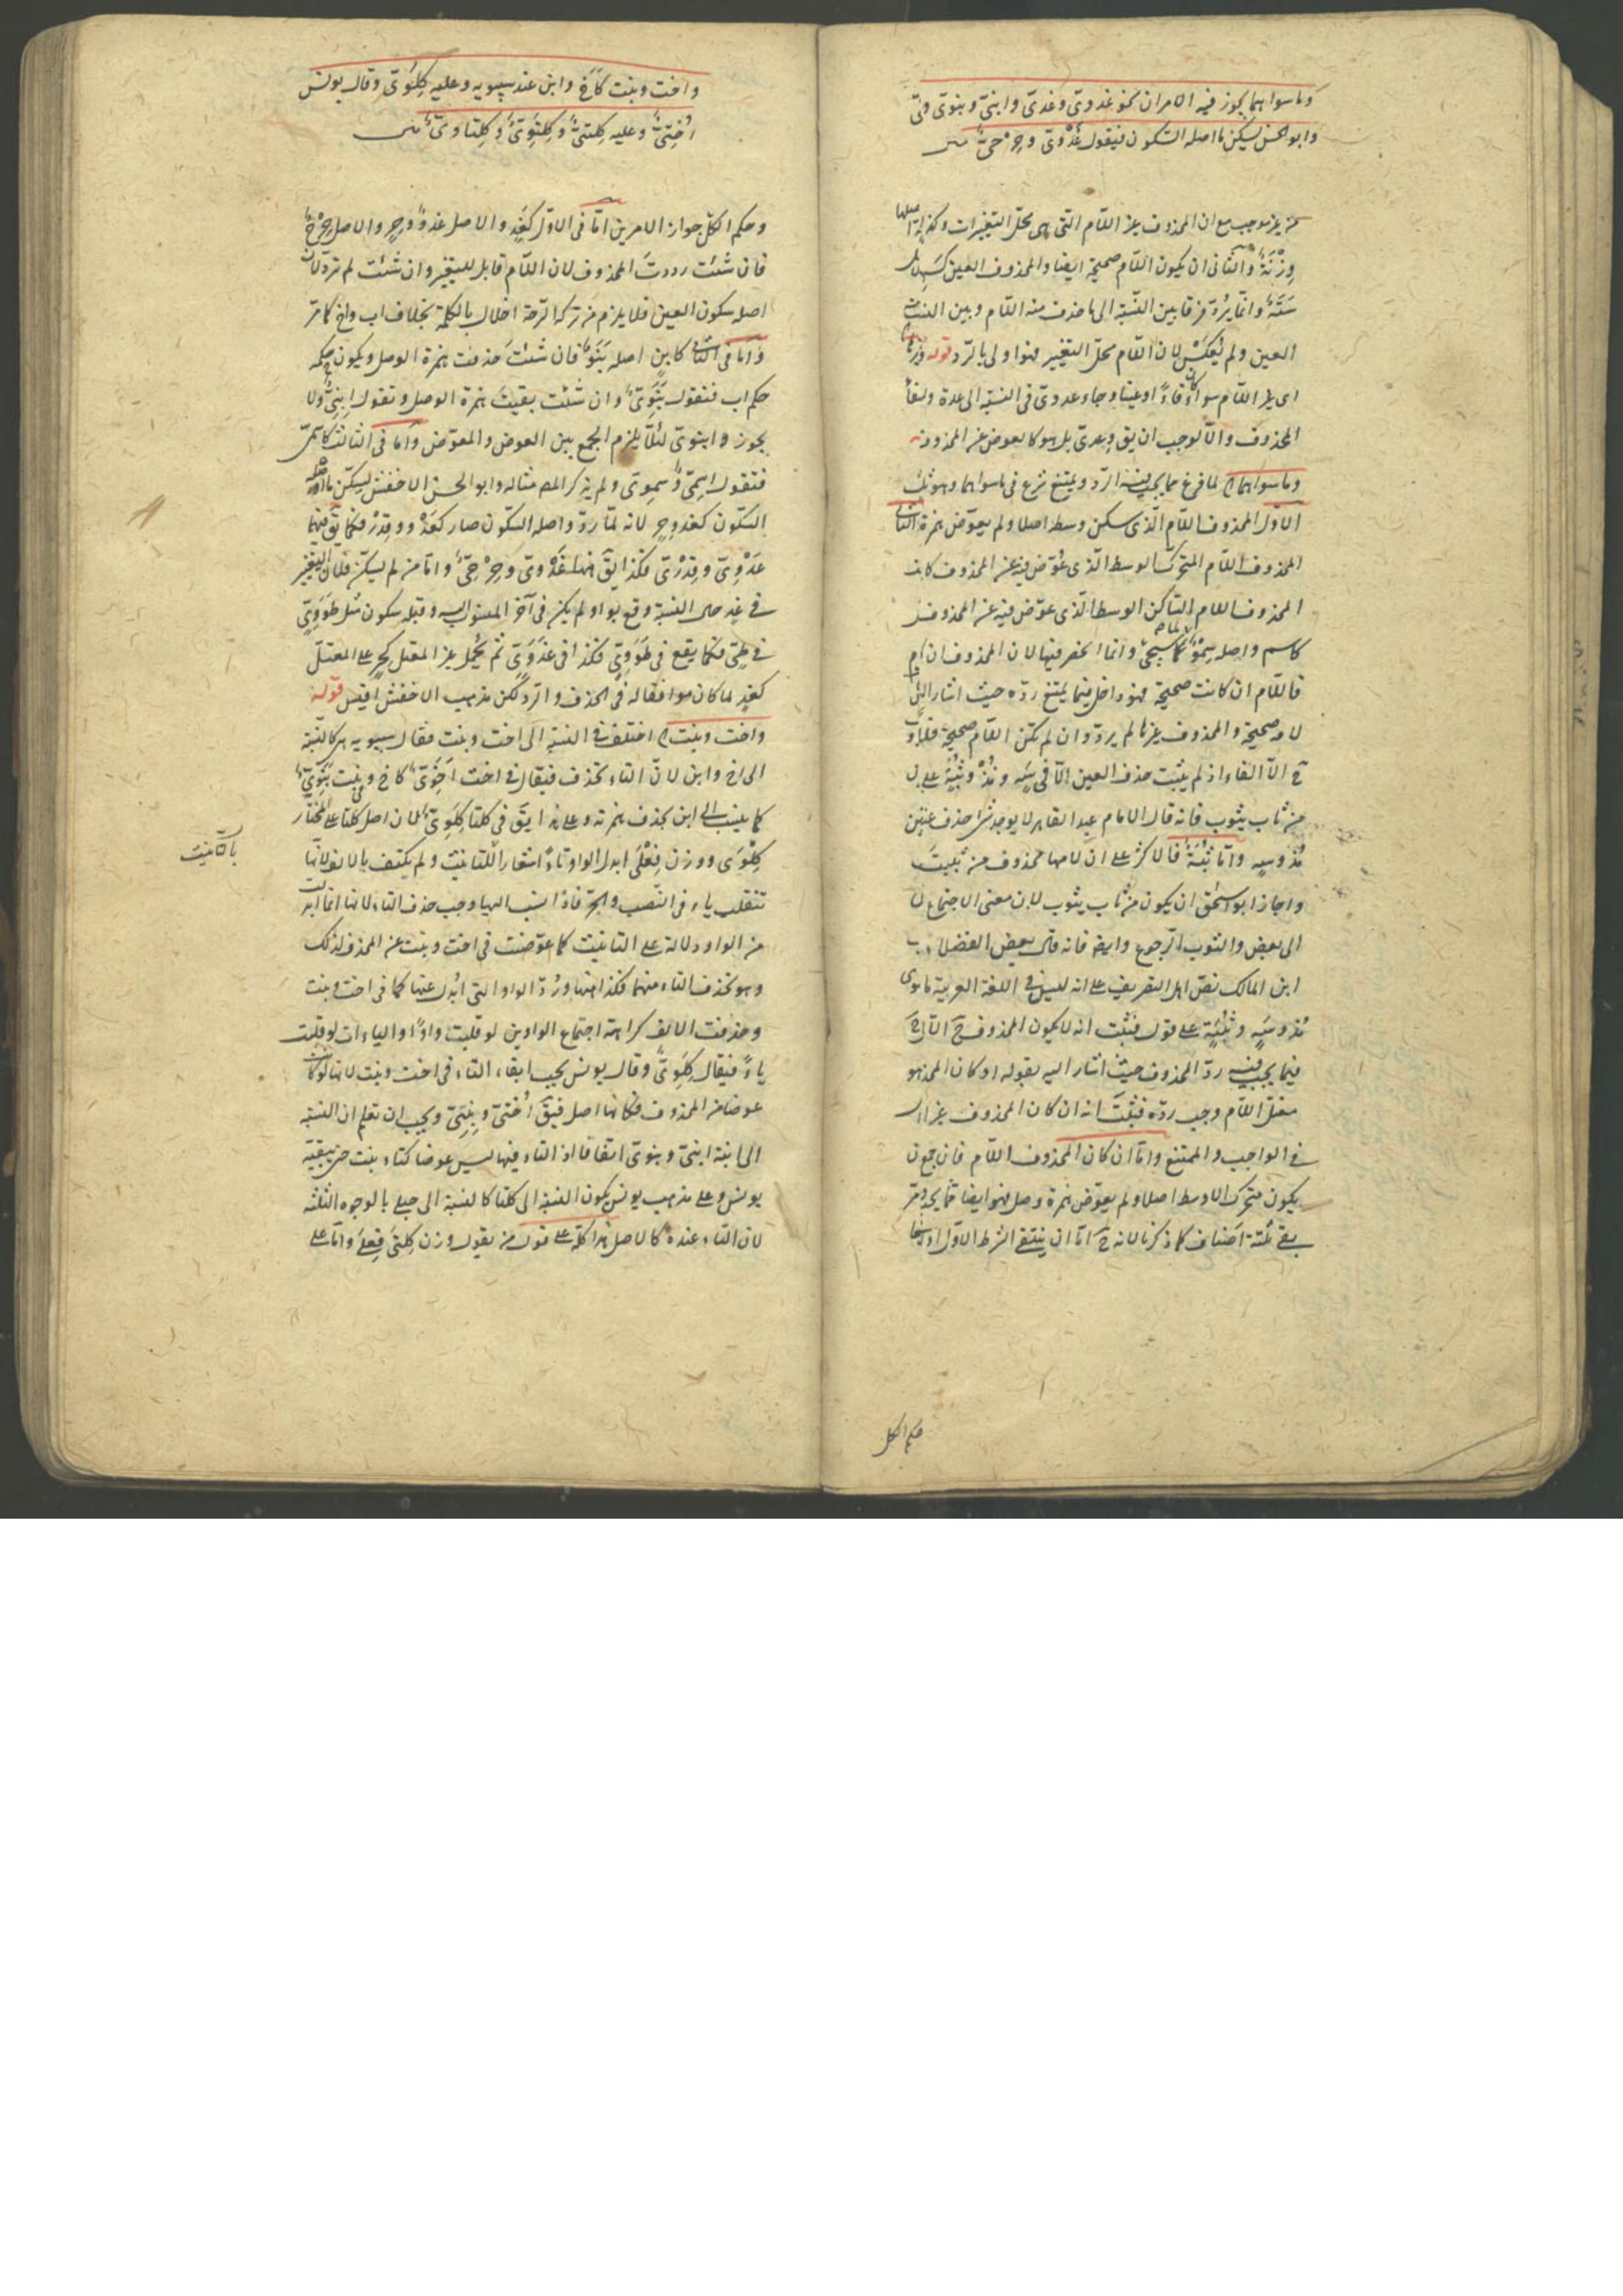 وما سواهما يجوز فيه الامران نحو غدوىّ وغدىّ وابنىّ وبنوىّ
وابو الحسن يسكن ما اصله السكون فيقول غَدْوىّ وحِرْحىّ
من غير موجب مع ان المحذوف غير اللّام التى هى محلّ التغييرات وكذا زنة اصلها
وِزْنَةٌ والثانى ان يكون اللّام صحيحة ايضا والمحذوف العين كسَهٍ لان
سَتَهٌ وانما يُرَدّ فرقا بين النسبة الى ما حذف منه اللّام وبين النسبة
العين ولم يُعكَسْ لان اللّام محلّ التغيير فهو اولى بالرّد قوله
اى غير اللّام سواء كان فاءً او عينا وجاء عدوىّ فى النسبة الى عدة
المحذوف والّا لوجب ان يق وعدىّ بل هو كالعوض عن المحذوف
وما سواهما الخ لما فرغ مما يجب فيه الرّد ويمتنع شرع فى ما سواهما وهو ثلث
الاوّل المحذوف اللّام الّذى سكن وسطه اصلا ولم يعوّض همزة الثانى
المحذوف اللّام المتحرّك الوسط الّذى عُوّض فيه عن المحذوف كابن
المحذوف اللام الساكن الوسط الّذى عوّض فيه عن المحذوف
كاسم واصله سِمْوٌ كما سيجئ وانما انحصر فيها لان المحذوف ان
فاللّام ان كانت صحيحة فهو داخل فيما يمتنع ردّه حيث اشار
لامه صحيحة والمحذوف غيرها لم يردّ وان لم تكن اللّام صحيحة
ح الّا الفاء اذ لم يثبت حذف العين الّا فى سَهٍ ومُذْ وثُبَةٌ على
من ثاب يثوب فانه قال الامام عبد القاهر لا يوجد شئ حذف عينه
مُذ وسهٍ وامّا ثُبَةٌ فالاكثر على ان لامها محذوف من ثبيتَ
واجاز ابو اسحٰق ان يكون من ثاب يثوب لان معنى الاجتماع
الى بعض والثوب الرّجوع وايضا فانه قال بعض الفضلاء
ابن المالك نصّ اهل التصريف على انه ليس فى اللغة العربية ما سوى
مُذ وسَهٍ وثُبَةٍ على قول فثبت انه لا يكون المحذوف ح
فيما يجب فيه ردّ المحذوف حيث اشار اليه بقوله او كان المحذوف
معتلّ اللّام وجب ردّه فثبتَ انه ان كان المحذوف غير اللام
فى الواجب والممتنع وامّا ان كان المحذوف اللّام فان
يكون متحرّك الاوسط اصلا ولم يعوّض همزة وصل فهو ايضا مما يجب
بقى ثلثة اصناف كما ذكرنا لانه ح امّا ان ينتفى الشرط الاوّل
حكم الكل
واخت وبنت كَأَخ وابن عند سيبويه وعليه كِلَوىّ وقال يونس
اُختىّ وعليه كِلتىّ وكِلتَوىّ وكِلتاوىّ
وحكم الكلّ جواز الامرين امّا فى الاوّل كغَدٍ والاصل غدوٌ وحِرٍ والاصل حِرْحٌ
فان شئت رددتَ المحذوف لان اللّام قابل للتغيير وان شئت لم تردّ لان
اصله سكون العين فلا يلزم من ترك الردّ اخلال بالكلمة بخلاف اب واخ كما مرّ
وامّا فى الثانى كابنٍ اصله بَنَوٌ فان شئتَ حذفت همزة الوصل ويكون حكمه
حكم اب فتقول بَنَوىّ وان شئت بقيت همزة الوصل وتقول ابنىّ ولا
يجوز ابنوىّ لئلّا يلزم الجمع بين العوض والمعوّض وامّا فى الثالث كاسم
فتقول اسمىّ وسِموىّ ولم يذكر المص مثاله وابو الحسن الاخفش يسكّن ما اصله
السكون كغد وحِرٍ لانه لمّا ردّ واصله السكون صار كغَدْو وقِدْرٌ فكما يق فيهما
غَدْوىّ وقِدْرىّ فكذا يق هنا غَدْوىّ وحِرْحىّ وامّا من لم يسكّن فلان التغيير
فى غدٍ حال النسبة وقع بواو لم يكن فى آخر المنسوب اليه وقبله سكون مثل طَوَوىّ
فى طىّ فكما يقع فى طَوَوىّ فكذا فى غدَوىّ ثم يُحمَل غير المعتل كحِرٍ على المعتلّ
كغدٍ لما كان موافقا له فى الحذف والردّ لكن مذهب الاخفش اقيس قوله
واخت وبنت الخ اختلف فى النسبة الى اخت وبنت فقال سيبويه هى كالنسبة
الى اخ وابن لانّ التاء تحذف فيقال فى اخت اَخَوىّ كاخ وبنت بَنَوىّ
كما ينسب الى ابن بحذف همزته وعلى هذا يقَ فى كلتا كِلَوىّ لان اصل كلتا على المختار
كِلْوَى ووزن فِعْلَى ابدل الواو تاءً اشعارا للتانيث ولم يكتف بالالف لانها
بالتانيث
تنقلب ياء فى النصب والجرّ فاذا نسب اليها وجب حذف التاء لانها انما ابدلت
من الواو دلالة على التانيث كما عوّضت فى اخت وبنت عن المحذوف لذلك
وهو تحذف التاء منهما فكذا هنا ورُدّ الواو التى ابدل عنها كما فى اخت وبنت
وحذفت الالف كراهة اجتماع الواوين لو قلبت واوًا والياءات لو قلبت
ياءً فيقال كِلَوىّ وقال يونس يجب ابقاء التاء فى اخت وبنت لانها لو كانت
عوضا من المحذوف فكانها اصل فيق اُختىّ وبنتىّ ويجب ان تعلم ان النسبة
الى ابنة ابنىّ وبنوىّ اتفاقا اذ التاء فيها ليس عوضا كتاء بنت حتى يبقيه
يونس وعلى مذهب يونس يكون النسبة الى كلتا كالنسبة الى حبلى بالوجوه الثلثة
لان التاء عنده كالاصل هذا كله على قول من يقول وزن كِلتى فِعلَى وامّا على